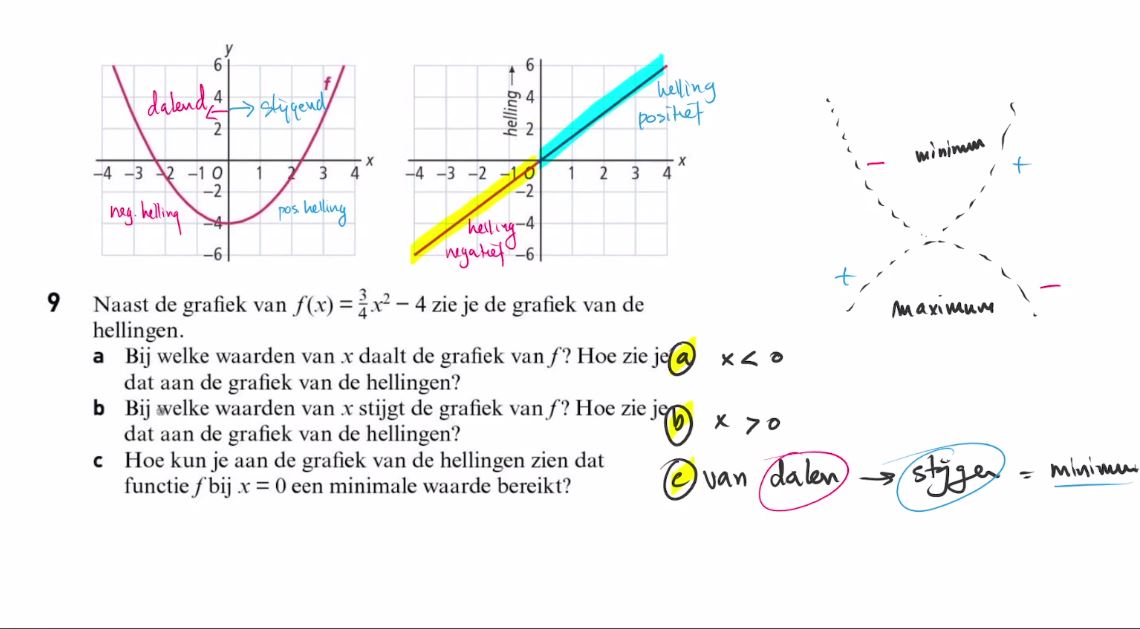 y
6
f
dalend
4
stijgend
2
x
-4 -3 -2 -1 0 1 2 3 4
-2
neg. helling
-4
pos. helling
-6
6
helling
4
helling
positief
2
x
-4 -3 -2 -1 0 1 2 3 4
-2
helling
-4
negatief
-6
minimum
-
+
+
-
maximum
9 Naast de grafiek van f(x) = 3/4 x² − 4 zie je de grafiek van de
hellingen.
a Bij welke waarden van x daalt de grafiek van f? Hoe zie je
dat aan de grafiek van de hellingen?
b Bij welke waarden van x stijgt de grafiek van f? Hoe zie je
dat aan de grafiek van de hellingen?
c Hoe kun je aan de grafiek van de hellingen zien dat
functie f bij x = 0 een minimale waarde bereikt?
a x < 0
b x > 0
c van dalen → stijgen = minimum